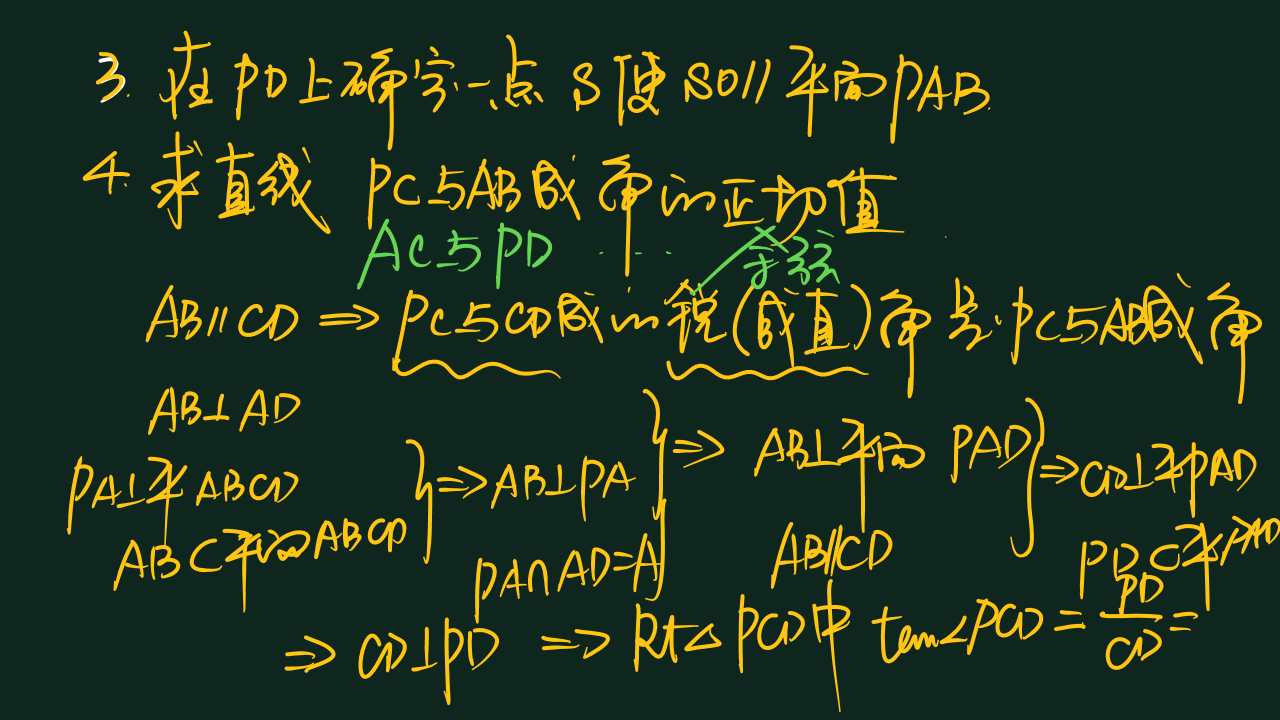 3. 在PD上确定一点S使SO∥平面PAB.
4. 求直线 PC与AB成角的正切值
AC与PD ····· 余弦
AB∥CD ⇒ PC与CD成的锐(或直)角是PC与AB成角
AB⊥AD
PA⊥平ABCD } ⇒ AB⊥PA } ⇒ AB⊥平面 PAD } ⇒ CD⊥平PAD
AB⊂平面ABCD PA∩AD=A AB∥CD PD⊂平PAD
⇒ CD⊥PD ⇒ Rt△PCD中 tan∠PCD = PD/CD =